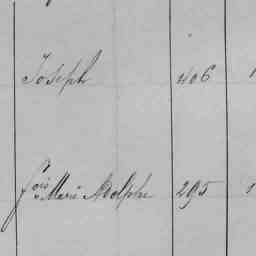 Joseph 406 1
fois Marie Adolphe 295 1